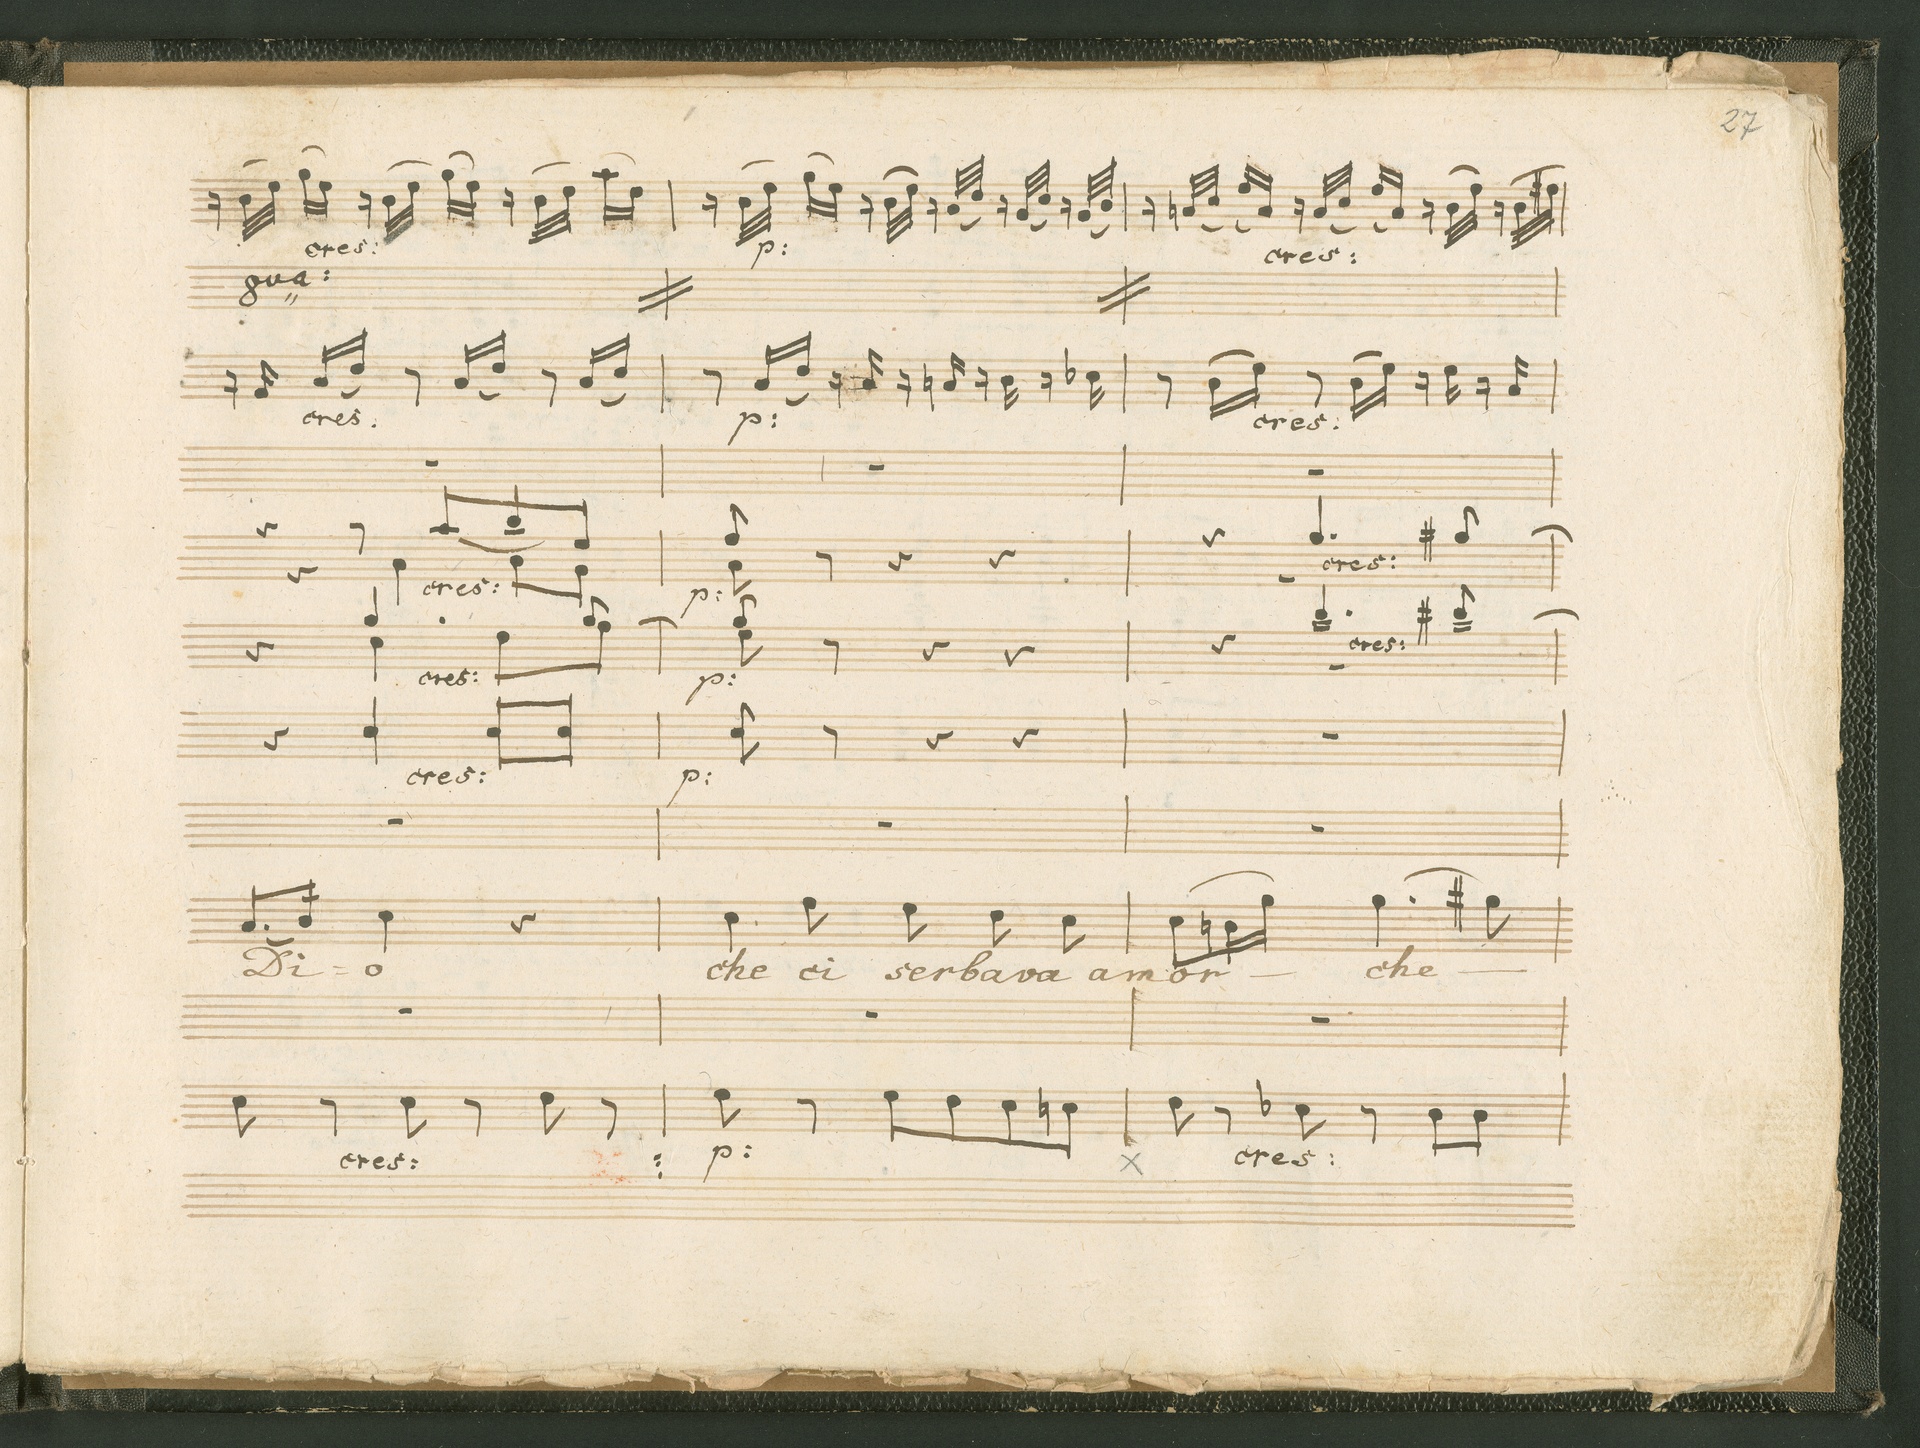 27
cres: p: cres:
8va:
cres: p: cres:
cres: p: cres:
cres: p: cres:
cres: p:
Di = o che ci serbava amor — che —
cres: p: x cres: